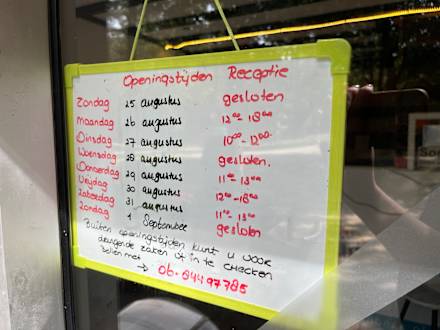 Openingstijden Receptie
Zondag 25 augustus gesloten
Maandag 26 augustus 12⁰⁰ - 18⁰⁰
Dinsdag 27 augustus 10⁰⁰ - 12⁰⁰
Woensdag 28 augustus gesloten.
Donderdag 29 augustus 11⁰⁰ - 13⁰⁰
Vrijdag 30 augustus 12⁰⁰ - 18⁰⁰
Zaterdag 31 augustus 11⁰⁰ - 13⁰⁰
Zondag 1 September gesloten
Buiten openingstijden kunt u voor
dringende zaken of in te checken
bellen met
→ 06-84497785